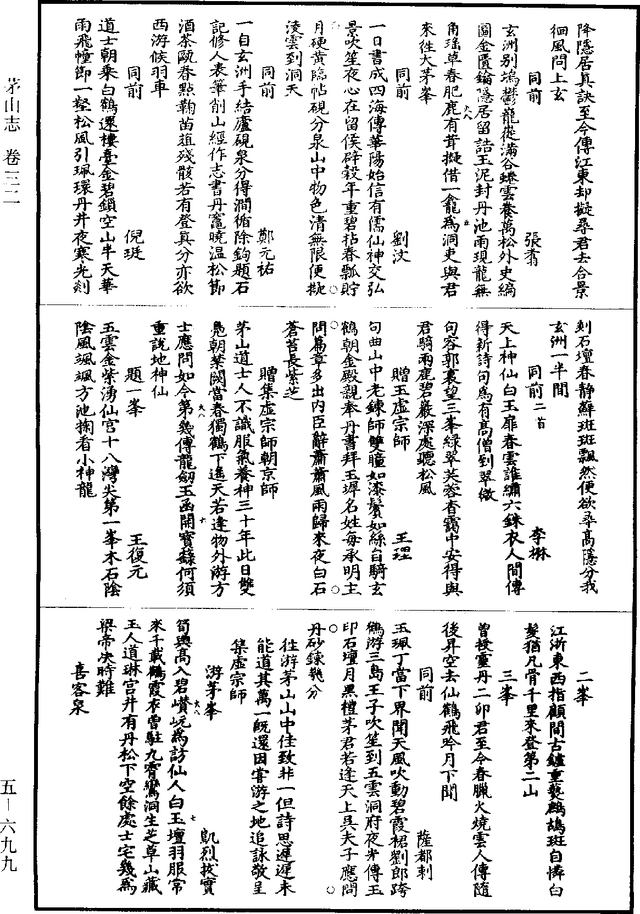 茅山志 卷三二
五－六九九
降隱居真訣至今傳江東却擬尋君去合景
徊風問上玄
同前 張翥
玄洲別塢鬱龍從滿谷蜂雲養萬松外史縞
圖金匱鑰隱居留誥玉泥封丹池雨現龍無
角瑤草春肥鹿有茸擬借一龕爲洞吏與君
來往大茅峯
同前 劉汶
一日書成四海傳華陽始信有儒仙神交弘
景吹笙夜心在留侯辟穀年重碧拈春瓢貯
月硬黃臨帖硯分泉山中物色清無限便擬
淩雲到洞天
同前 鄭元祐
一自玄洲手結廬硯泉分得澗循除鈎題石
記修人表筆削山經作志書丹竈曉温松節
酒茶甌春點蕨苗葅殘骸若有登真分亦欲
西游候羽車
同前 倪珽
道士朝乘白鶴還樓臺金碧鎖空山半天華
雨飛幢節一壑松風引珮環丹井夜寒光剡
剡石壇春静蘚斑斑飄然便欲尋高隱分我
玄洲一半間
同前二首 李琳
天上神仙白玉扉春雲誰繡六銖衣人間傳
得新詩句爲有高僧到翠微
句容郭裏望三峯綠翠芙蓉杳靄中安得與
君騎兩鹿碧巖深處聽松風
贈玉虛宗師 王理
句曲山中老鍊師雙瞳如漆鬢如絲自騎玄
鶴朝金殿親奉丹書拜玉墀名姓每承明主
問篇章多出内臣辭蕭蕭風雨歸來夜白石
蒼苔長紫芝
贈集虛宗師朝京師
茅山道士人不識服氣養神三十年此日雙
鳧朝紫闕當春獨鶴下遥天若逢物外游方
士應問如今第幾傳龍劒玉函開寶籙何須
重說地神仙
題一峯 王復元
五雲金紫湧仙宮十八灣尖第一峯木石陰
陰風颯颯方池掬看小神龍
二峯
江浙東西指顧間古爐重爇鷓鴣斑自憐白
髮猶凡骨千里來登第二山
三峯
曾授靈丹二卯君至今春臘火燒雲人傳隨
後昇空去仙鶴飛吟月下聞
同前 薩都剌
玉珮丁當下界聞天風吹動碧霞裙劉郎跨
鶴游三島王子吹笙到五雲洞府夜光傳玉
印石壇月黑禮茅君若逢天上吳夫子應問
丹砂鍊幾分
往游茅山山中佳致非一但詩思遲遲未
能道其萬一旣還因嘗游之地追詠敬呈
集虛宗師
游茅峯 凱烈拔實
筍輿高入碧巑岏爲訪仙人白玉壇羽服常
來千載鶴霞衣曾駐九霄鸞洞生芝草山藏
玉人道琳宮井有丹松下空餘處士宅幾爲
梁帝决時難
喜客泉